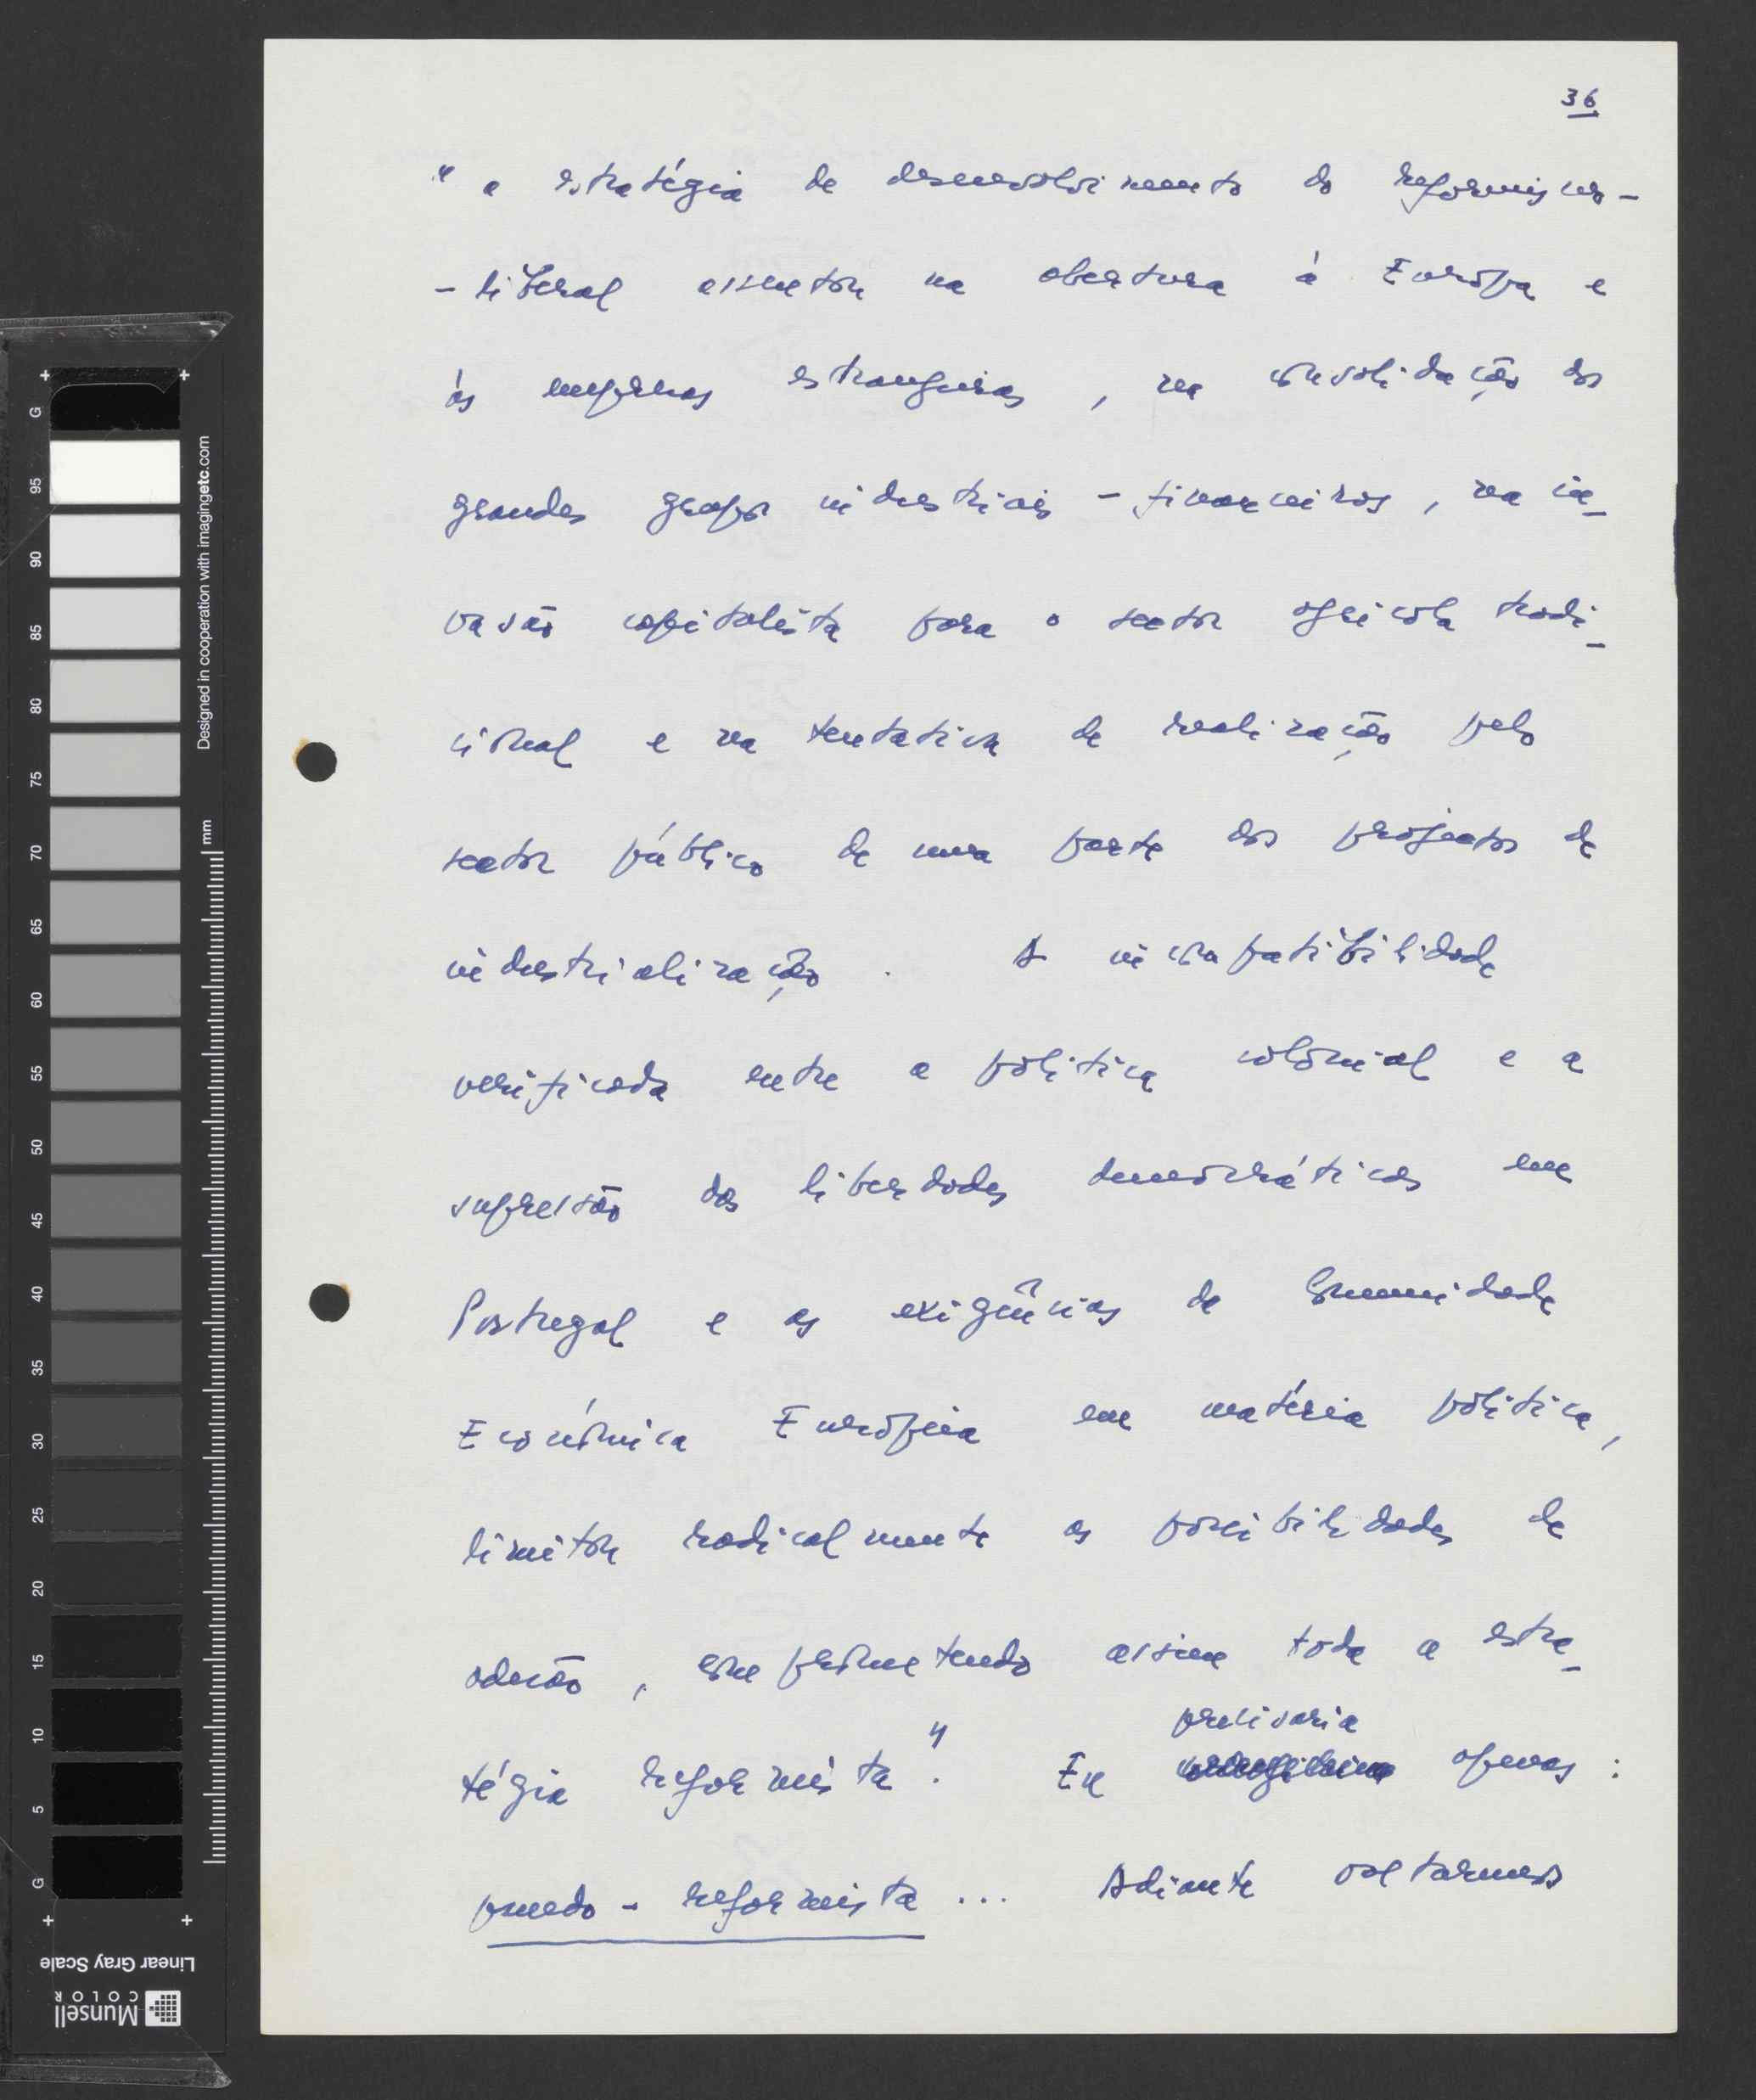 36
" a estratégia de desenvolvimento do reformismo-
- liberal assentou na abertura à Europa e
às empresas estrangeiras, na consolidação dos
grandes grupos industriais - financeiros, na in-
vasão capitalista para o sector agrícola tradi-
cional e na tentativa de realização pelo
sector público de uma parte dos projectos de
industrialização. A incompatibilidade
verificada entre a política colonial e a
supressão das liberdades democráticas em
Portugal e as exigências da Comunidade
Económica Europeia em matéria política,
limitou radicalmente as possibilidades de
adesão, comprometendo assim toda a estra-
tégia reformista". Eu precisaria apenas:
pseudo - reformista ... Adiante voltaremos
G
95
90
85
80
75
70
65
60
55
50
45
40
35
30
25
20
15
10
5
G
mm
Designed in cooperation with imagingetc.com
Linear Gray Scale
Munsell
COLOR